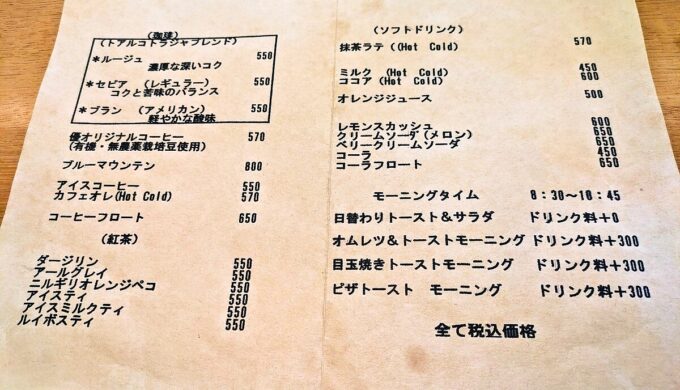 (珈琲)
(トアルコトラジャブレンド)
*ルージュ 550
濃厚な深いコク
*セピア (レギュラー) 550
コクと苦味のバランス
*ブラン (アメリカン) 550
軽やかな酸味
優オリジナルコーヒー 570
(有機・無農薬栽培豆使用)
ブルーマウンテン 800
アイスコーヒー 550
カフェオレ(Hot Cold) 570
コーヒーフロート 650
(紅茶)
ダージリン 550
アールグレイ 550
ニルギリオレンジペコ 550
アイスティ 550
アイスミルクティ 550
ルイボスティ 550
(ソフトドリンク)
抹茶ラテ ((Hot Cold) 570
ミルク (Hot Cold) 450
ココア (Hot Cold) 600
オレンジジュース 500
レモンスカッシュ 600
クリームソーダ(メロン) 650
ベリークリームソーダ 650
コーラ 450
コーラフロート 650
モーニングタイム 8:30〜10:45
日替わりトースト&サラダ ドリンク料+0
オムレツ&トーストモーニング ドリンク料+300
目玉焼きトーストモーニング ドリンク料+300
ピザトースト モーニング ドリンク料+300
全て税込価格